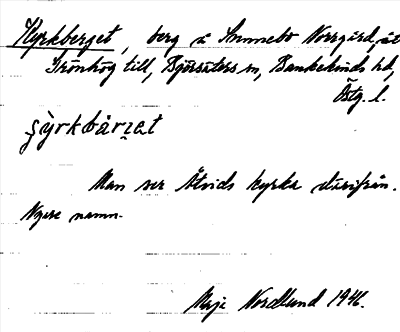 Kyrkberget, berg å Smmebo Norrgård, åt
Trönhög till, Björsäters sn, Bankekinds hd,
Östg. l.
çy̆rkbȧri̯et
Man ser Åtvids kyrka därifrån.
Nyare namn.
Maja Nordlund 1946.